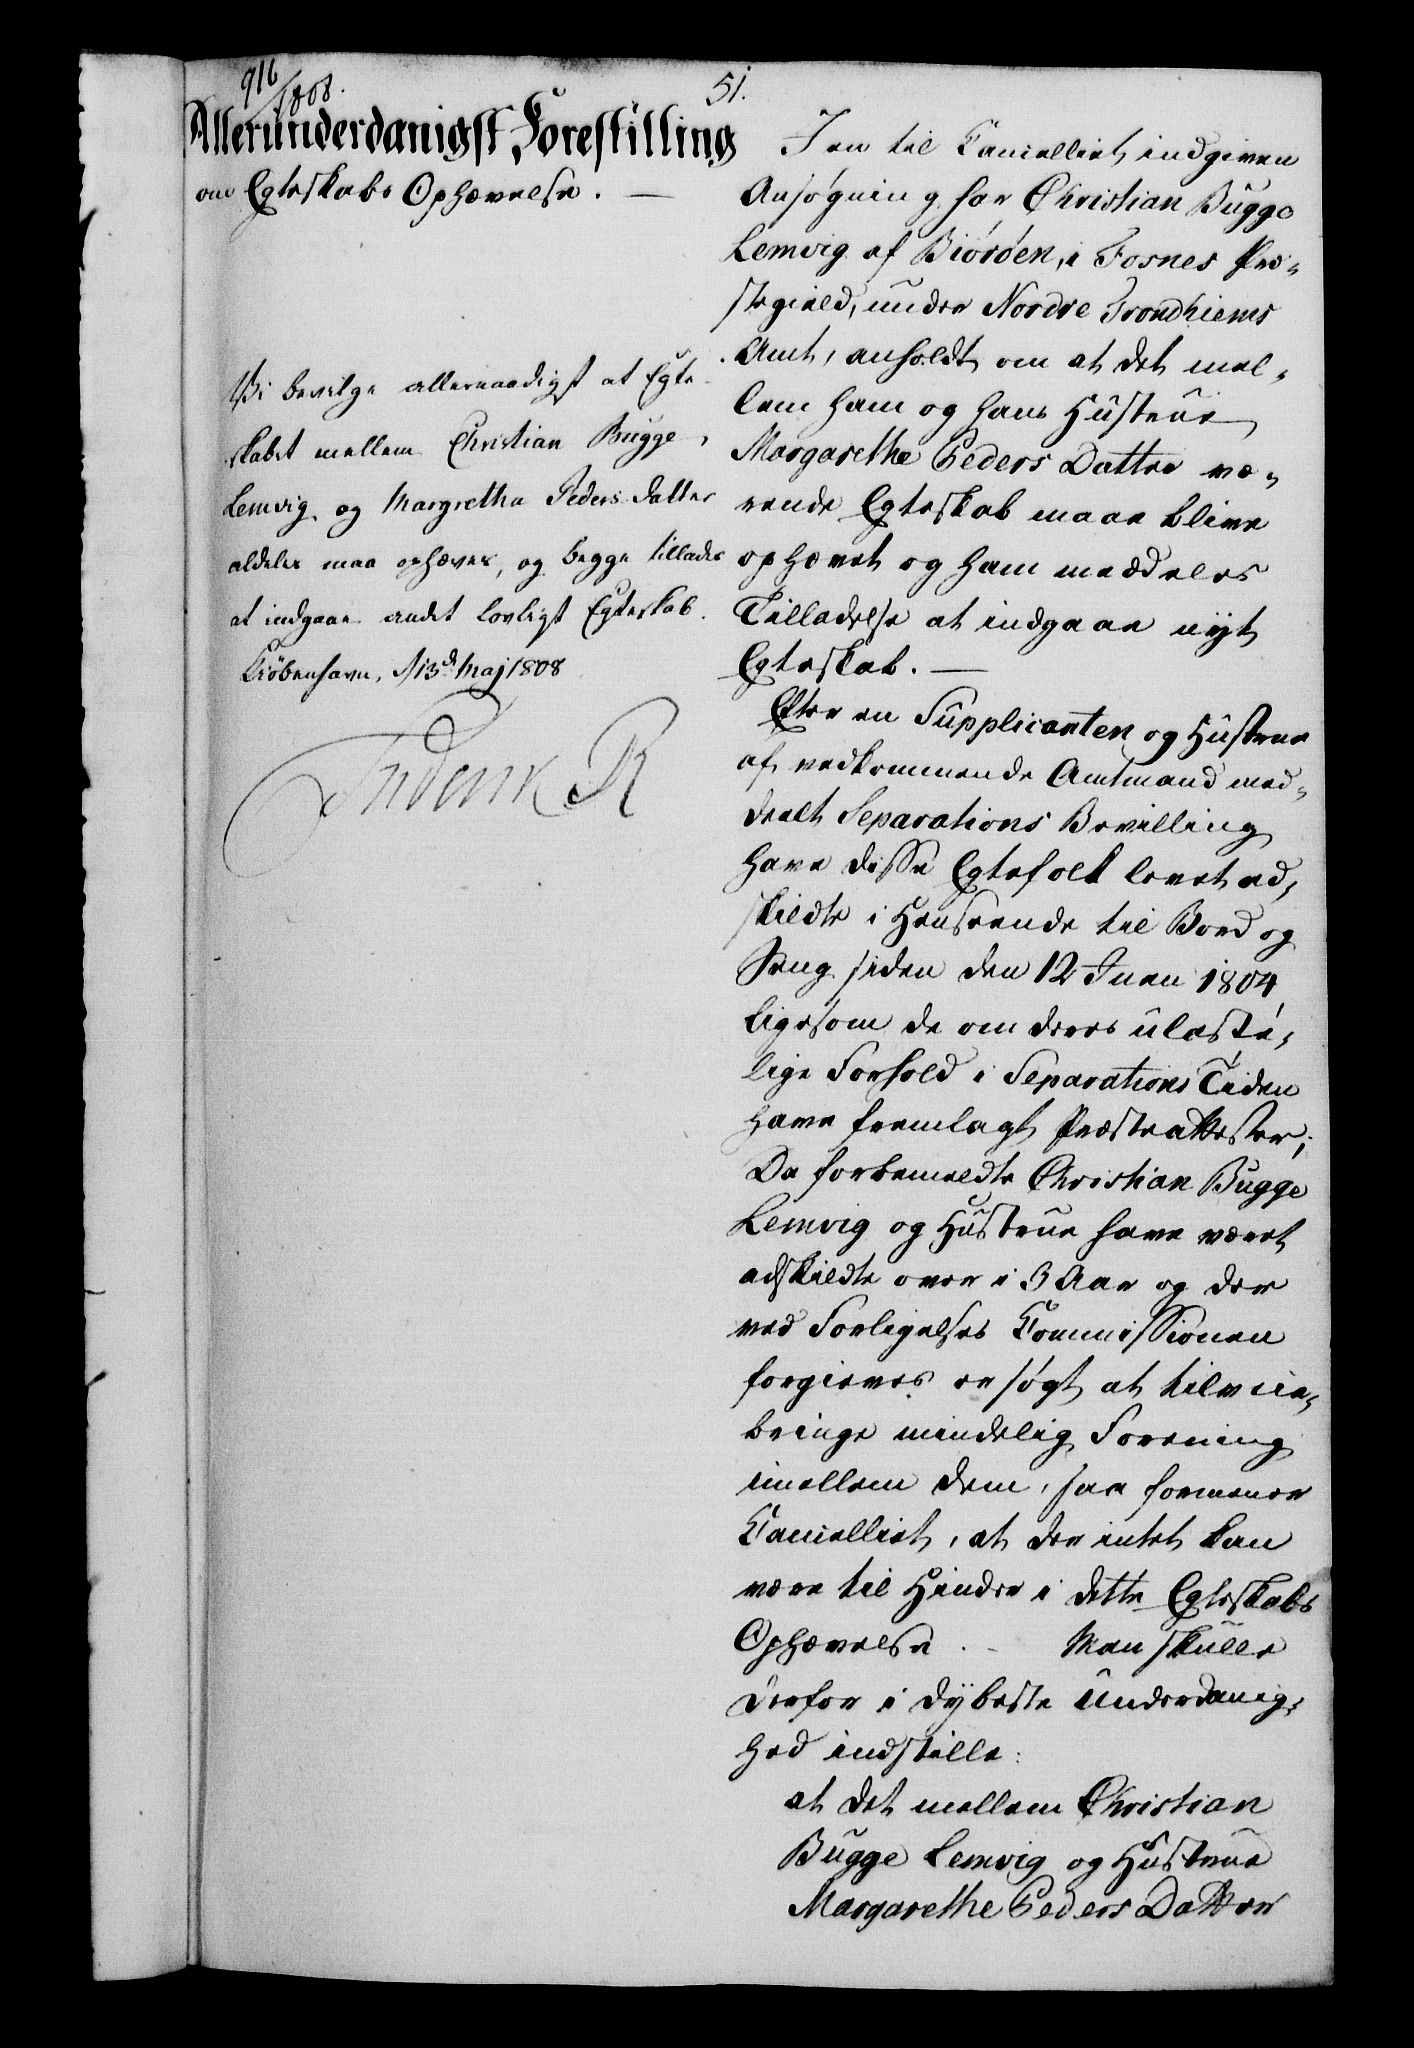 916/1808.
51.
Allerunderdanigst Forestilling
om Egteskabs Ophævelse. —
Vi bevilge allernaadigst at Egte-
skabet mellem Christian Bugge
Lemvig og Margretha Peders Datter
aldeles maa ophæves, og begge tillades
at indgaae andet lovligt Egteskab.
Kiöbenhavn, d 13de Maj 1808
Frederik R
I en til Cancelliet indgiven
Ansøgning har Christian Bugge
Lemvig af Biöröen, i Fosnes Præ-
stegield, under Nordre Trondhiems
Amt, anholdt om at det mel-
lem ham og hans Hustrue
Margarethe Peders Datter væ-
rende Egteskab maae blive
ophævet og ham meddeles
Tilladelse at indgaae nyt
Egteskab. —
Efter en Supplicanten og Hustrue
af vedkommende Amtmand med-
deelt Separations Bevilling
have disse Egtefolk levet ad-
skildte i Henseende til Bord og
Seng siden den 12 Junii 1804
ligesom de om deres ulaste-
lige Forhold i Separations Tiden
have fremlagt Præsteattester;
Da forbemeldte Christian Bugge
Lemvig og Hustrue have været
adskildte over i 3 Aar og der
ved Forligelses Commissionen
forgieves er søgt at tilveie-
bringe mindelig Forening
imellem dem, saa formener
Cancelliet, at der intet kan
være til Hinder i dette Egteskabs
Ophævelse. - Man skulle
derfor i dybeste Underdanig-
hed indstille:
at det mellem Christian
Bugge Lemvig og Hustrue
Margarethe Peders Datter